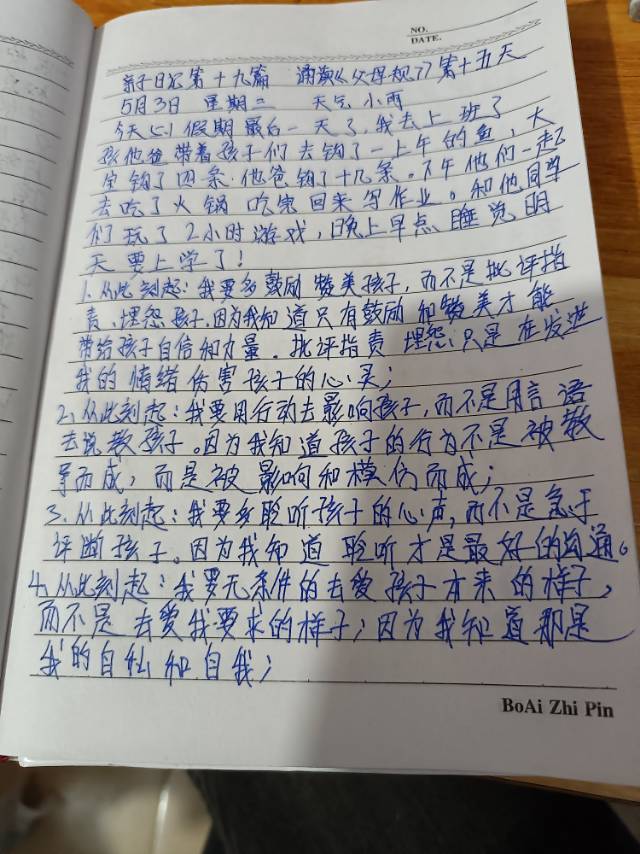 NO.
DATE.
亲子日记第十九篇 诵读《父母规》第十五天
5月3日 星期二 天气 小雨
今天心假期最后一天了,我去上班了
孩他爸带着孩子们去钓了一上午的鱼,大
宝钓了四条.他爸钓了十几条.下午他们一起
去吃了火锅 吃完回来写作业。和他同学
们玩了2小时游戏,晚上早点睡觉明
天要上学了!
1.从此刻起:我要多鼓励赞美孩子,而不是批评指
责、埋怨孩子.因为我知道只有鼓励和赞美才能
带给孩子自信和力量.批评指责 埋怨只是在发泄
我的情绪伤害孩子的心灵;
2.从此刻起:我要用行动去影响孩子,而不是用言语
去说教孩子。因为我知道孩子的行为不是被教
导而成,而是被影响和模仿而成;
3.从此刻起:我要多聆听孩子的心声,而不是急于
评断孩子。因为我知道聆听才是最好的沟通。
4.从此刻起:我要无条件的去爱孩子本来的样子,
而不是去爱我要求的样子;因为我知道那是
我的自私和自我;
BoAi Zhi Pin